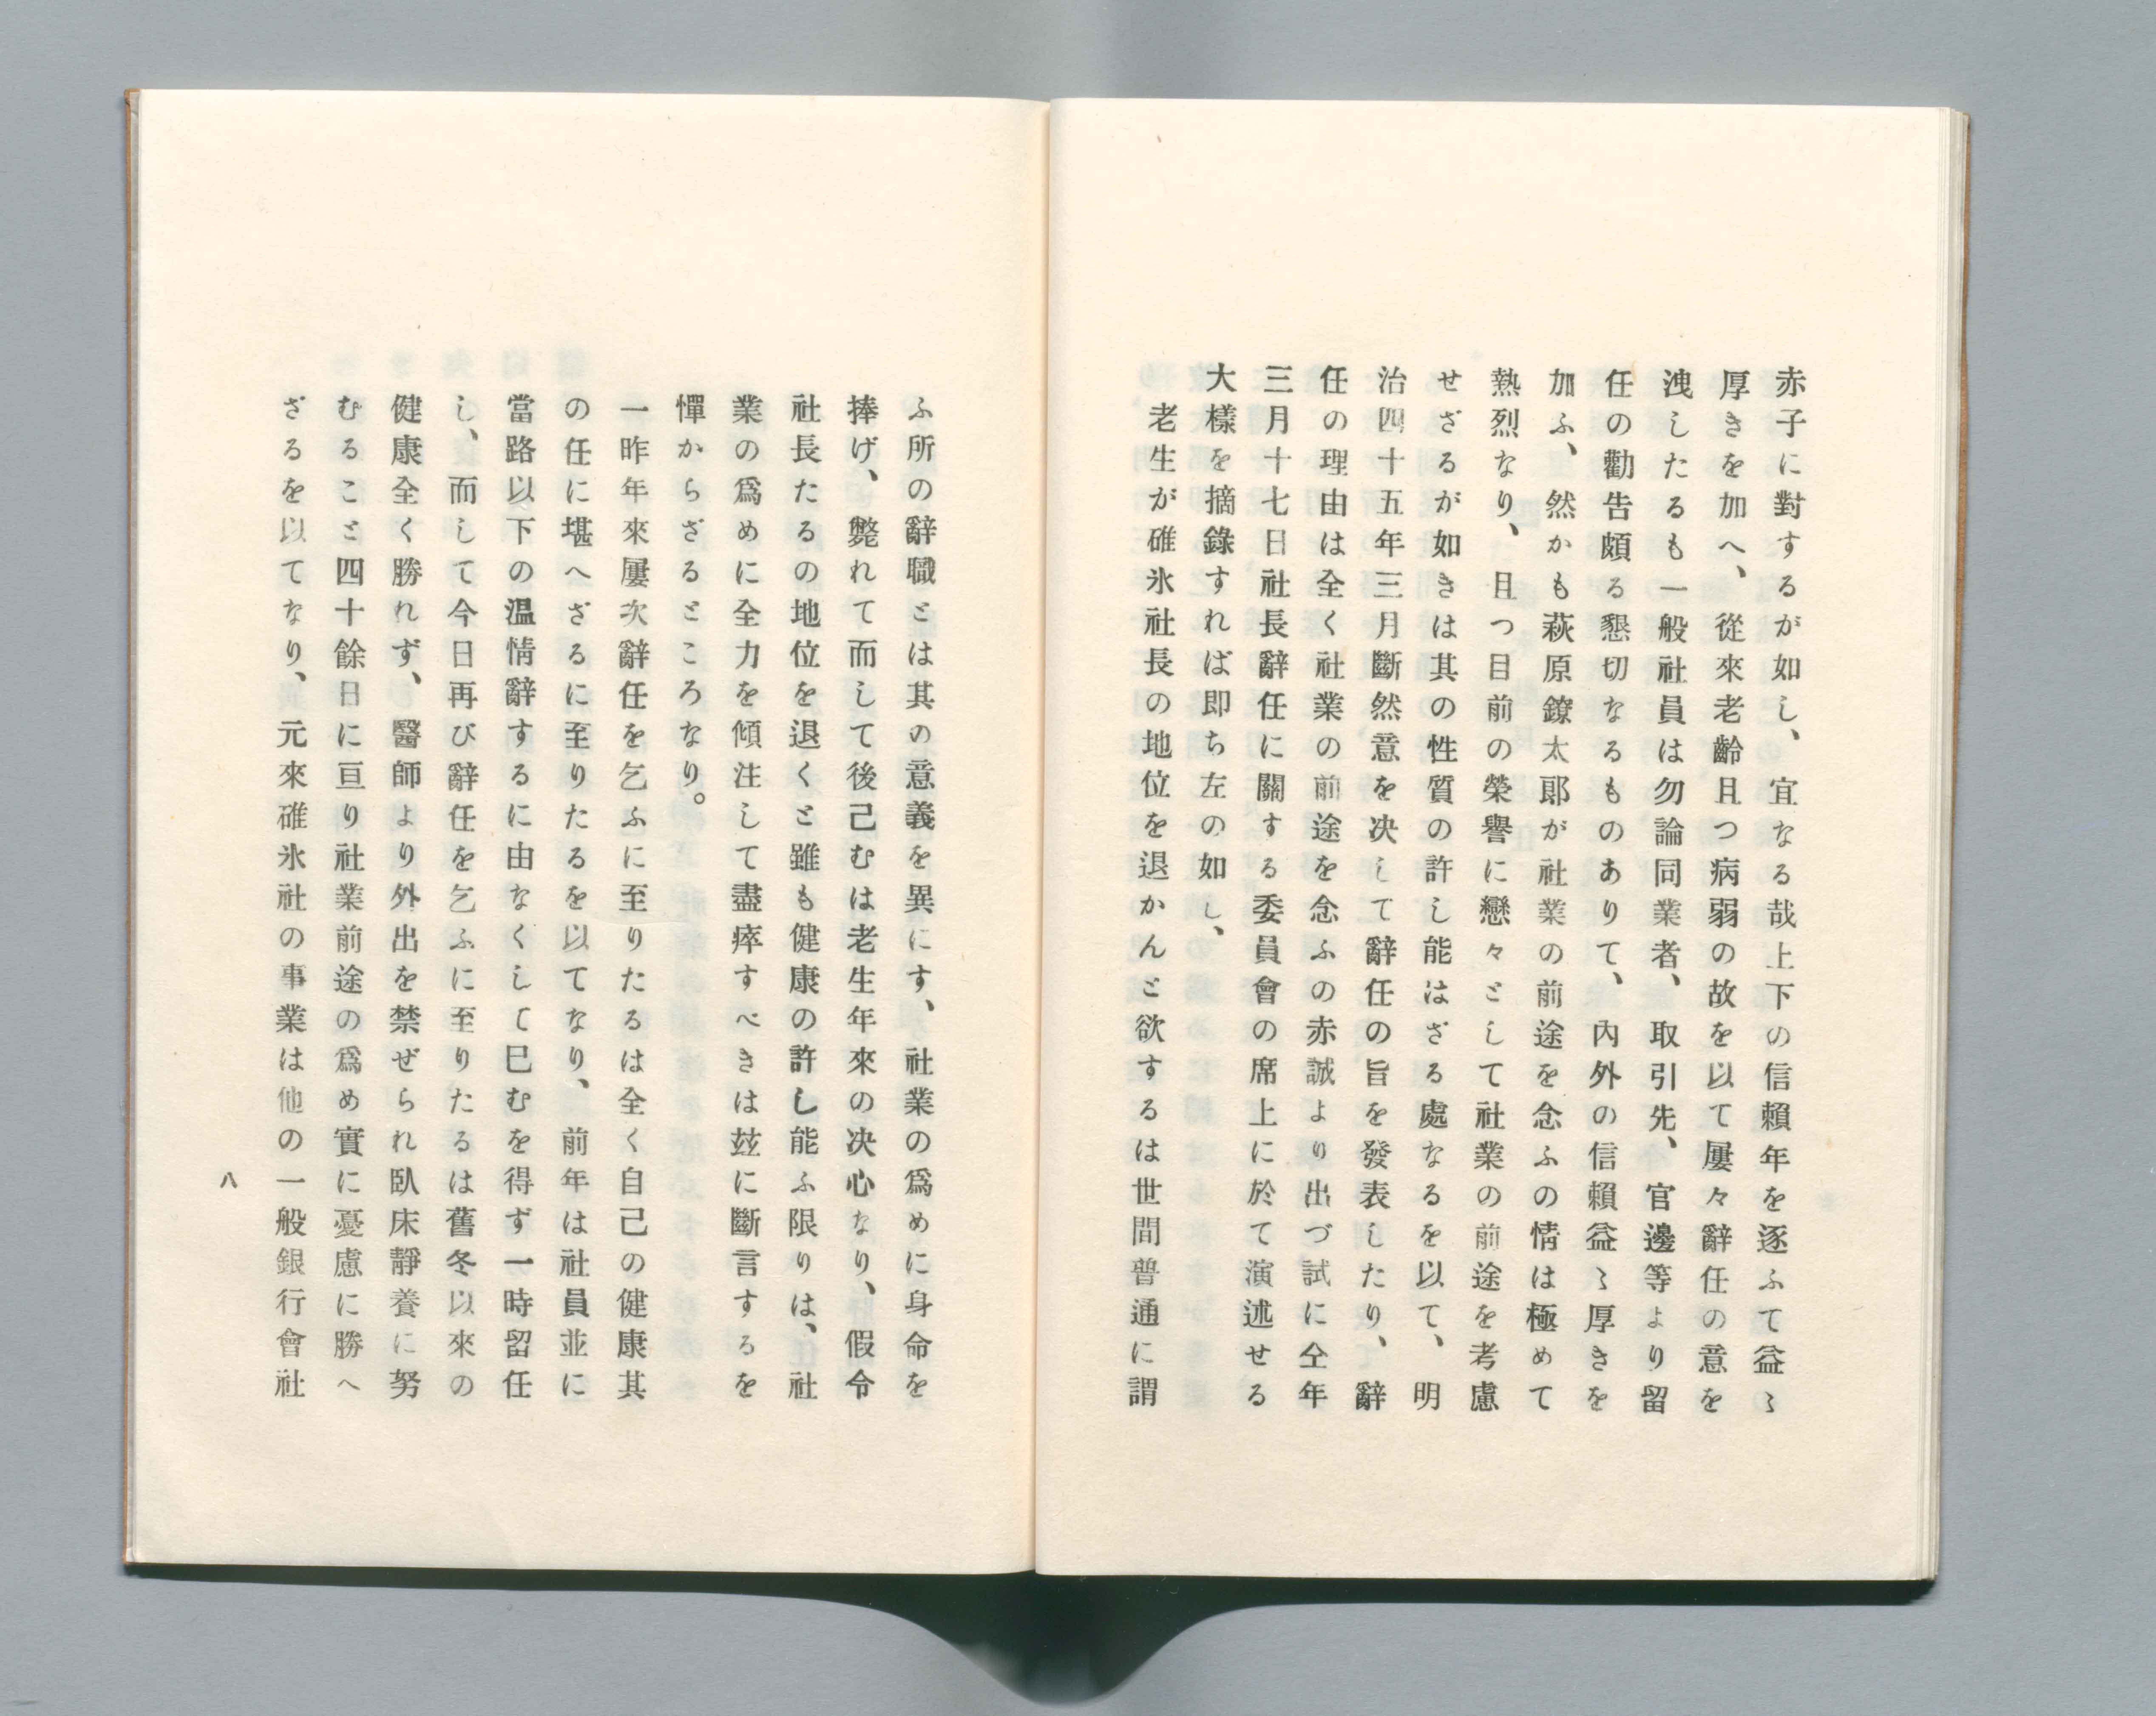 赤子に對するが如し、宜なる哉上下の信賴年を逐ふて益〻
厚きを加へ、從來老齡且つ病弱の故を以て屢々辭任の意を
洩したるも一般社員は勿論同業者、取引先、官邊等より留
任の勸告頗る懇切なるものありて、內外の信賴益〻厚きを
加ふ、然かも萩原鐐太郞が社業の前途を念ふの情は極めて
熱烈なり、且つ目前の榮譽に戀々として社業の前途を考慮
せざるが如きは其の性質の許し能はざる處なるを以て、明
治四十五年三月斷然意を决して辭任の旨を發表したり、辭
任の理由は全く社業の前途を念ふの赤誠より出づ試に仝年
三月十七日社長辭任に關する委員會の席上に於て演述せる
大樣を摘錄すれば卽ち左の如し、
老生が碓氷社長の地位を退かんと欲するは世間普通に謂
ふ所の辭職とは其の意義を異にす、社業の爲めに身命を
捧げ、斃れて而して後己むは老生年來の决心なり、假令
社長たるの地位を退くと雖も健康の許し能ふ限りは、社
業の爲めに全力を傾注して盡瘁すべきは玆に斷言するを
憚からざるところなり。
一昨年來屢次辭任を乞ふに至りたるは全く自己の健康其
の任に堪へざるに至りたるを以てなり、前年は社員並に
當路以下の溫情辭するに由なくして巳むを得ず一時留任
し、而して今日再び辭任を乞ふに至りたるは舊冬以來の
健康全く勝れず、醫師より外出を禁ぜられ臥床靜養に努
むること四十餘日に亘り社業前途の爲め實に憂慮に勝へ
ざるを以てなり、元來碓氷社の事業は他の一般銀行會社
八